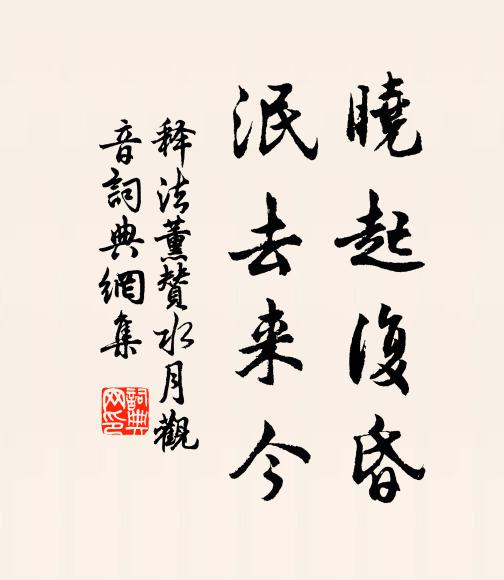 曉起復昏
泯去来今
释法薰贊水月觀
音詞典網集
詞典
网印